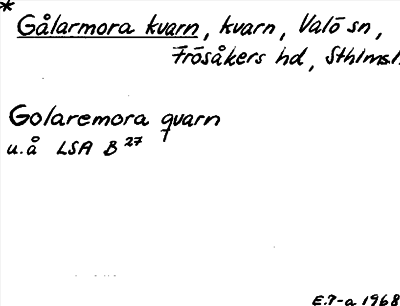 * Gålarmora kvarn, kvarn, Valö sn,
Frösåkers hd, Sthlms l.
Golaremora qvarn
u.å LSA B 27
E.P-a 1968